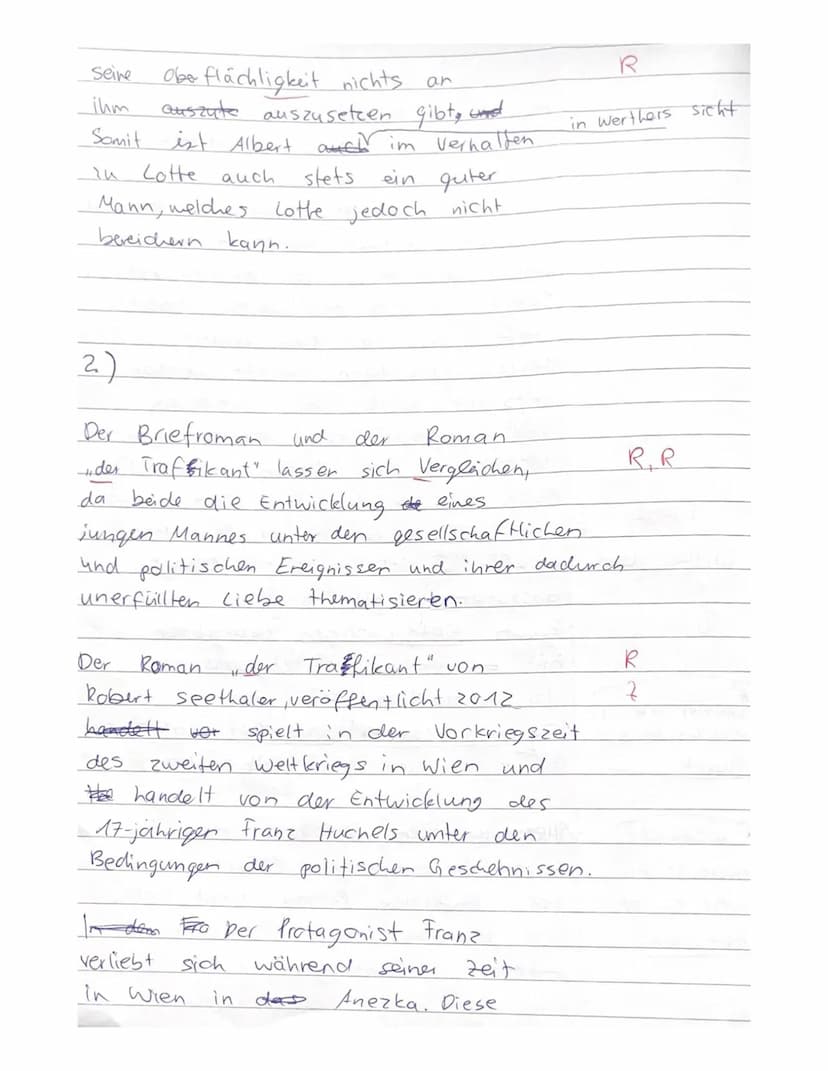 seine Oberflächligkeit nichts an R
ihm auszute auszusetzen gibt, und
in werthers sicht
Somit ist Albert auch im Verhalten
zu Lotte auch stets ein guter
Mann, welches Lotte jedoch nicht
bereichern kann.
2)
Der Briefroman und der Roman
„der Traffikant" lassen sich Vergleichen, R, R
da beide die Entwicklung de eines
jungen Mannes unter den gesellschaftlichen
und politischen Ereignissen und ihrer dadurch
unerfüllten Liebe thematisieren.
Der Roman „der Traffikant" von R
Robert Seethaler, veröffentlicht 2012 Z
handelt vor spielt in der Vorkriegszeit
des zweiten Weltkriegs in Wien und
handelt von der Entwicklung des
17-jähriger Franz Huchels unter den
Bedingungen der politischen Geschehnissen.
In dem Fra Der Protagonist Franz
verliebt sich während seiner Zeit
in Wien in das Anezka. Diese